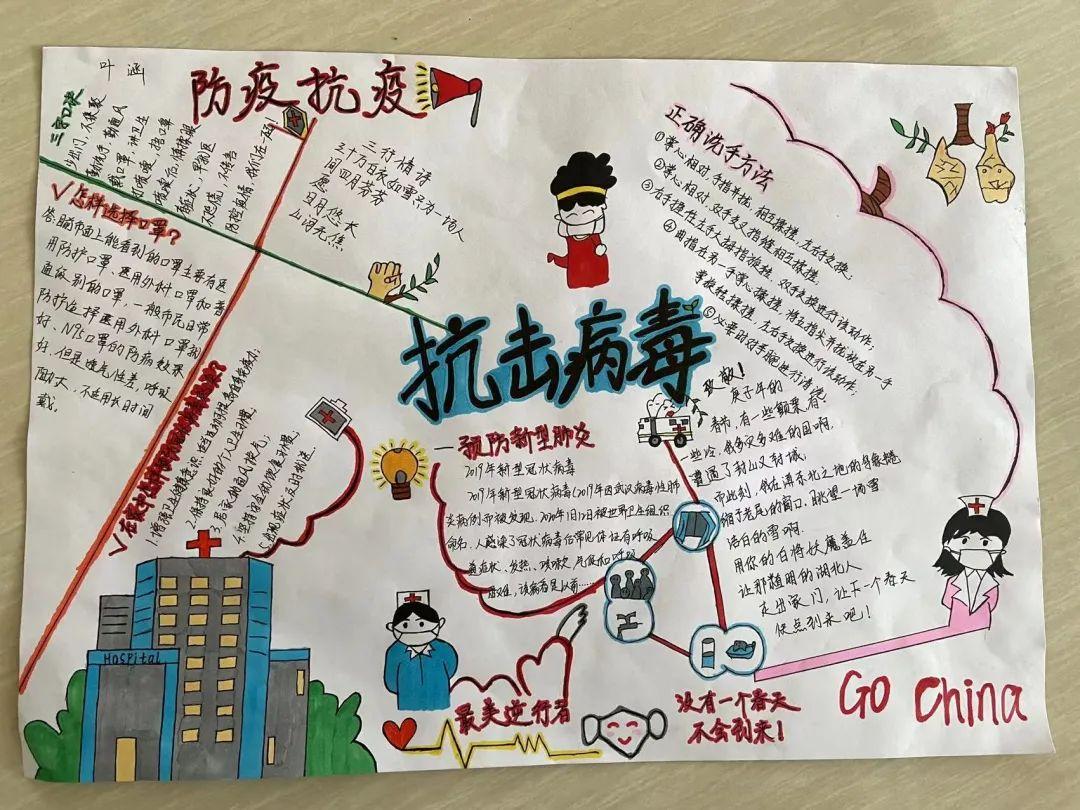 叶涵
防疫抗疫
三字口诀
少出门，不集聚
勤洗手，勤通风
戴口罩，讲卫生
打喷嚏，捂口罩
喷嚏后，慎揉眼
不恐慌，不传谣
防控疫情，我们在一起！
三行情诗
三十万日夜如雪只为一场人
间四月芬芳
愿 日月悠长
山河无恙
✓怎样选择口罩？
答：目前市面上能看到的口罩主要有医
用防护口罩、医用外科口罩和普
通级别的口罩，一般市民日常
防护选择医用外科口罩就
好、N95口罩的防病效果
好，但是透气性差，呼吸
阻力大，不适用长时间
戴。
1.增强卫生健康意识，适当运动
2.保持良好的个人卫生习惯，
3.居家勤通风换气；
4.坚持安全的饮食习惯，
5.出现症状及时就医。
抗击病毒
正确洗手方法
①掌心相对，手指并拢，相互揉搓，左右手交换；
②掌心相对，双手交叉指缝相互揉搓，
③右手握住左手大拇指旋转，双手交换进行该动作，
④曲指在另一手掌心揉搓，将五指尖并拢放在另一手
掌旋转揉搓，左右手交换进行该动作，
⑤必要时对手腕进行清洗
致敬！
庚子年的
春节，有一些颠栗，有
一些冷，我多灾多难的国啊，
遭遇了封山又封城，
而此刻，我在
的窗口，眺望一场雪
洁白的雪啊
用你的白将妖魔盖住
让那
的湖北人
走出家门，让下一个春天
快点到来吧！
预防新型肺炎
2019年新型冠状病毒
2019年新型冠状病毒（2019因武汉病毒性肺
炎病例而被发现，2020年1月12日被世界卫生组织
命名，人感染了冠状病毒后常见体征有呼吸
道症状、发热、咳嗽、气促和呼吸
困难，该病毒是以前……
HOSPITal
最美逆行者
没有一个春天
不会到来！
GO China